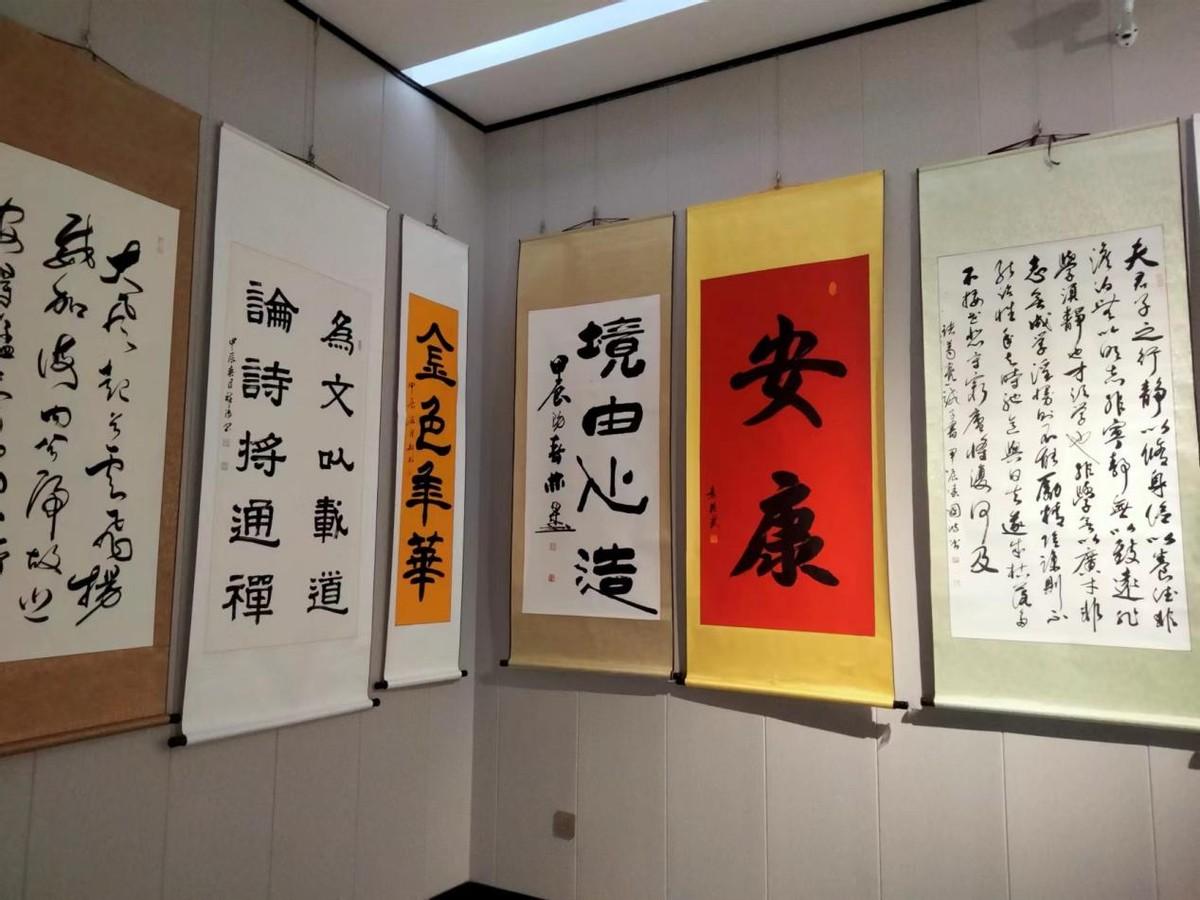 大风起兮雲飛揚
威加海内兮歸故乡
為文以載道
論詩將通禪
甲辰
金色年華
甲辰
境由心造
甲辰初春
安康
夫君子之行靜以修身儉以養德非
澹泊無以明志非寧靜無以致遠夫
學須靜也才須學也非學無以廣才非
志無成學淫慢則不能勵精險躁則不
能治性年与時馳意與日去遂成枯落多
不接世悲守窮廬將復何及
諸葛亮誡子書甲辰